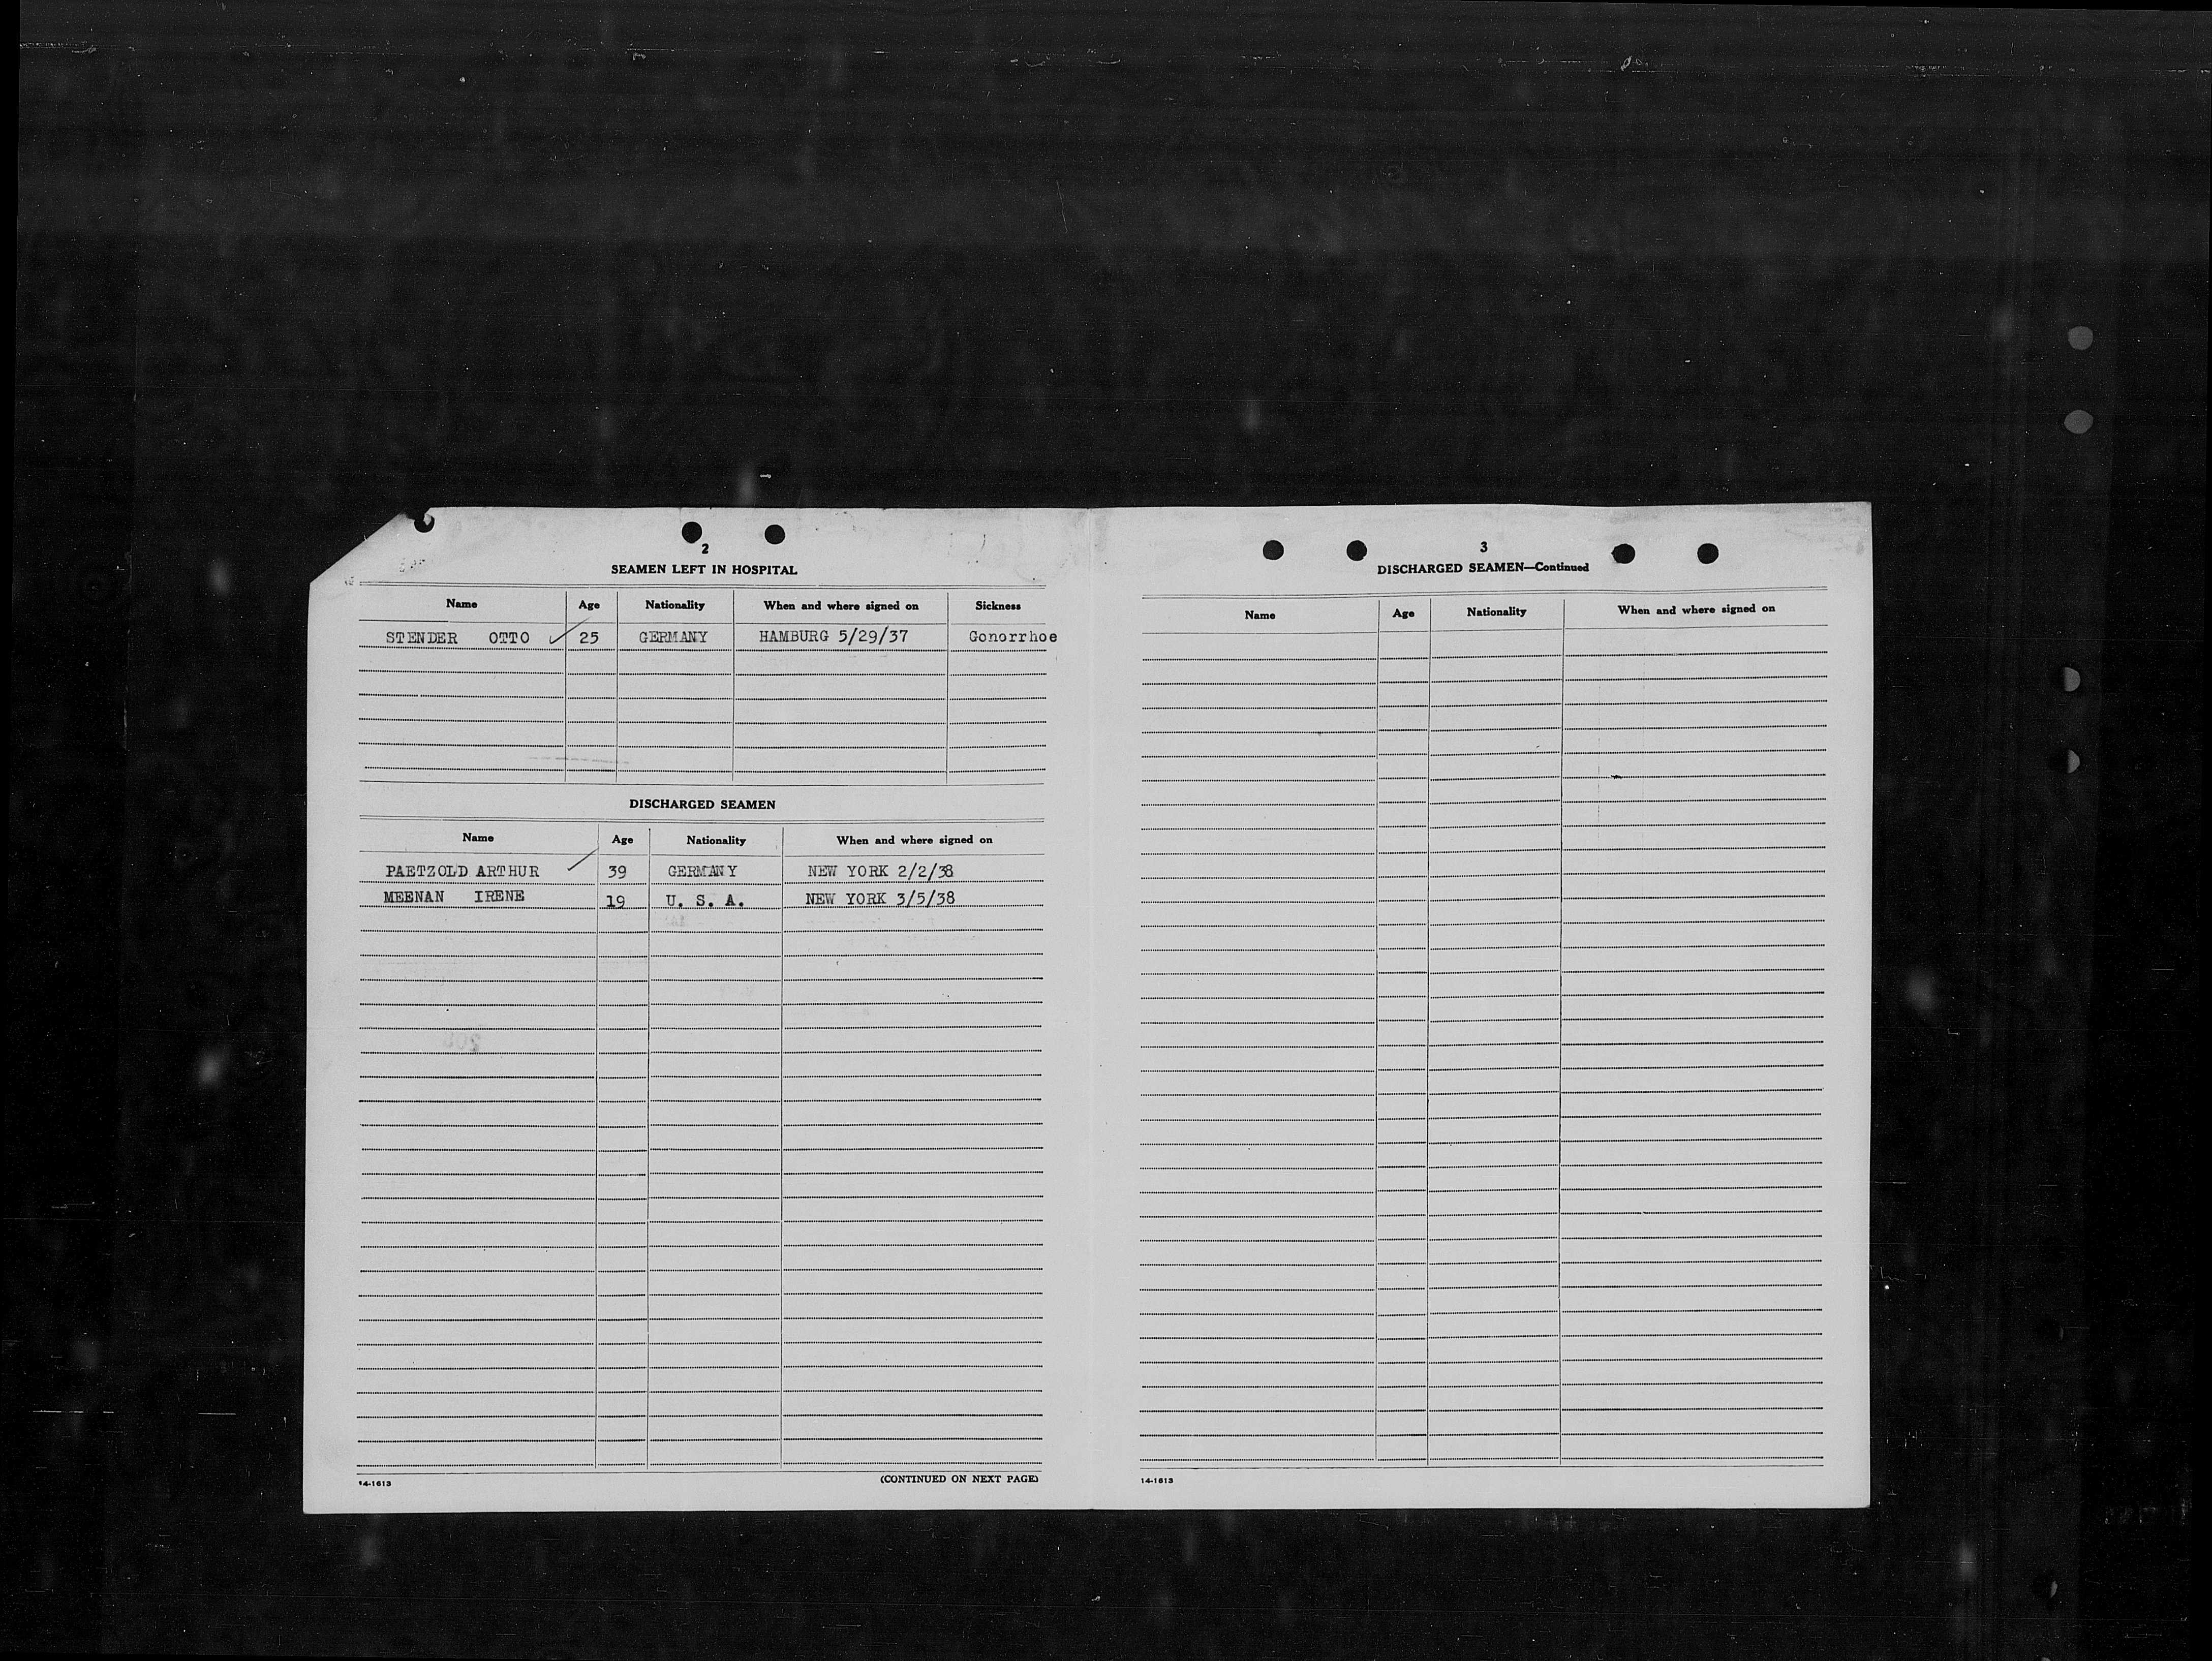 2
SEAMEN LEFT IN HOSPITAL
Name Age Nationality When and where signed on Sickness
STENDER OTTO ✓ 25 GERMANY HAMBURG 5/29/37 Gonorrhoe
DISCHARGED SEAMEN
Name Age Nationality When and where signed on
PAETZOLD ARTHUR ✓ 39 GERMANY NEW YORK 2/2/38
MEENAN IRENE 19 U. S. A. NEW YORK 3/5/38
14-1613 (CONTINUED ON NEXT PAGE)
3
DISCHARGED SEAMEN—Continued
Name Age Nationality When and where signed on
14-1613